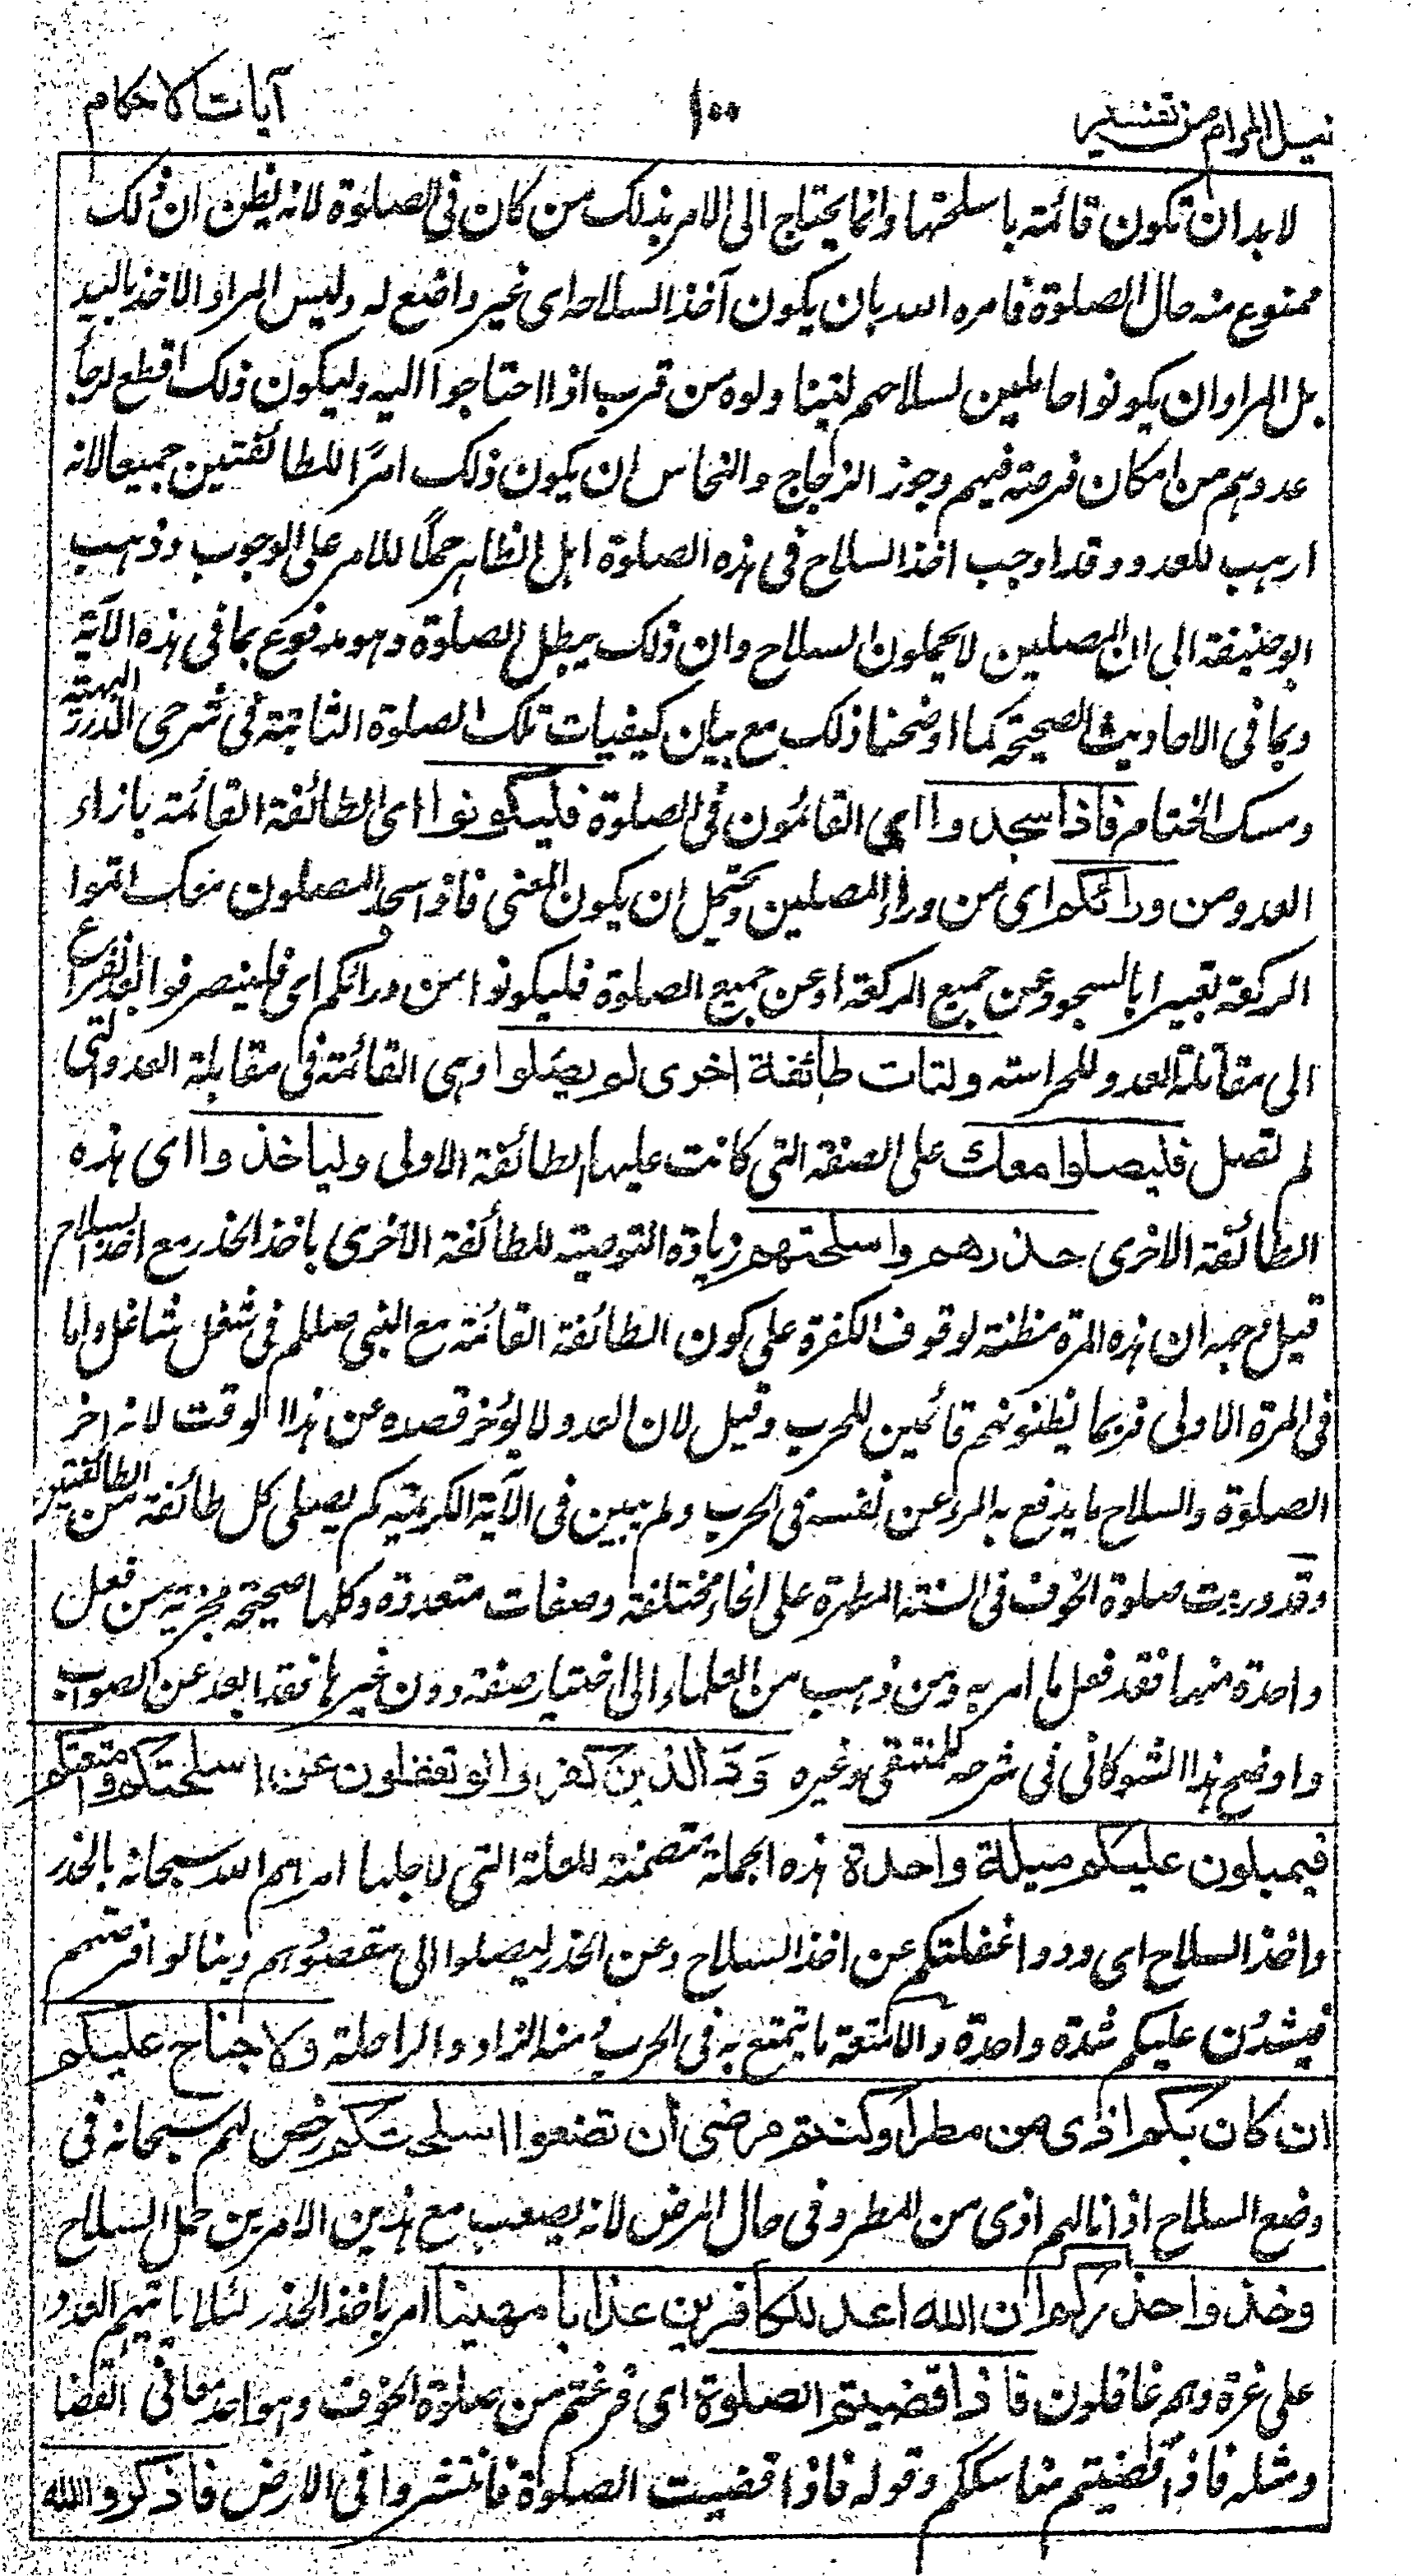 نيل المرام من تفسير ١٠٠ آيات الاحكام
لا بد ان تكون قائمة باسلحتها وانما يحتاج الى الامر بذلك من كان فى الصلوة لانه يظن ان ذلك
ممنوع منه حال الصلوة فامره الله بان يكون آخذا السلاحه اى غير واضع له وليس المراد الاخذ باليد
بل المراد ان يكونوا حاملين لسلاحهم ليتناولوه من قرب اذا احتاجوا اليه وليكون ذلك اقطع لرجأ
عدوهم من امكان فرصة فيهم وجوز الزجاج والنحاس ان يكون ذلك امرًا للطائفتين جميعا لانه
ارهب للعدو وقد اوجب اخذ السلاح فى هذه الصلوة اهل الظاهر حملًا للامر على الوجوب وذهب
ابو حنيفة الى ان المصلين لا يحملون السلاح وان ذلك يبطل الصلوة وهو مدفوع بما فى هذه الآية
وبما فى الاحاديث الصحيحة كما اوضحنا ذلك مع بيان كيفيات تلك الصلوة الثابتة فى شرحى الدرر البهية
ومسك الختام فاذا سجدوا اى القائمون فى الصلوة فليكونوا اى الطائفة القائمة بازاء
العدو من ورائكم اى من وراء المصلين ويحتمل ان يكون المعنى فاذا سجد المصلون معك اتموا
الركعة تعبيرا بالسجود عن جميع الركعة او عن جميع الصلوة فليكونوا من ورائكم اى فلينصرفوا بعد الفراغ
الى مقابلة العدو للحراسة ولتات طائفة اخرى لم يصلوا وهى القائمة فى مقابلة العدو التى
لم تصل فليصلوا معك على الصفة التى كانت عليها الطائفة الاولى ولياخذوا اى هذه
الطائفة الاخرى حذرهم واسلحتهم زيادة التوصية للطائفة الاخرى باخذ الحذر مع اخذ السلاح
قيل وجهه ان هذه المرة مظنة لوقوف الكفرة على كون الطائفة القائمة مع النبى صللم فى شغل شاغل واما
فى المرة الاولى فربما يظنونهم قائمين للحرب وقيل لان العدو لا يؤخر قصده عن هذا الوقت لانه اخر
الصلوة والسلاح ما يدفع به المرء عن نفسه فى الحرب ولم يبين فى الآية الكريمة كم يصلى كل طائفة من الطائفتين
وقد وردت صلوة الخوف فى السنة المطهرة على انحاء مختلفة وصفات متعددة وكلها صحيحة مجزية من فعل
واحدة منها فقد فعل ما امر به ومن ذهب من العلماء الى اختيار صفة دون غيرها فقد ابعد عن الصواب
واوضح هذا الشوكانى فى شرحه للمنتقى وغيره وَدَّ الذين كفروا لو تغفلون عن اسلحتكم وامتعتكم
فيميلون عليكم ميلة واحدة هذه الجملة متضمنة للعلة التى لاجلها امرهم الله سبحانه بالحذر
واخذ السلاح اى ودوا غفلتكم عن اخذ السلاح وعن الحذر ليصلوا الى مقصودهم وينالوا فرصتهم
فيشدون عليكم شدة واحدة والامتعة ما يتمتع به فى الحرب ومنه الزاد والراحلة ولا جناح عليكم
ان كان بكم اذى من مطر او كنتم مرضى أن تضعوا اسلحتكم رخص لهم سبحانه فى
وضع السلاح اذا نالهم اذى من المطر وفى حال المرض لانه يصعب مع هذين الامرين حمل السلاح
وخذوا حذركم ان الله اعد للكافرين عذابا مهينا امر باخذ الحذر لئلا ياتيهم العدو
على غرة وهم غافلون فاذا قضيتم الصلوة اى فرغتم من صلوة الخوف وهو احد معانى القضا
ومثله فاذا قضيتم مناسككم وقوله فاذا قضيت الصلوة فانتشروا فى الارض فاذكروا الله